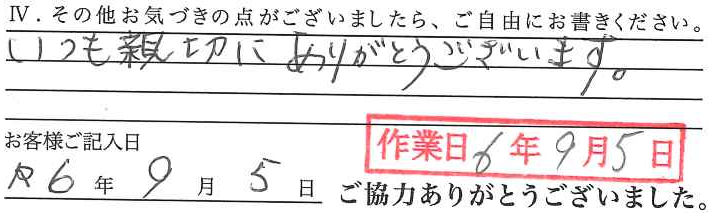 Ⅳ．その他お気づきの点がございましたら、ご自由にお書きください。
いつも親切にありがとうございます。
お客様ご記入日
作業日6年9月5日
R6年9月5日
ご協力ありがとうございました。